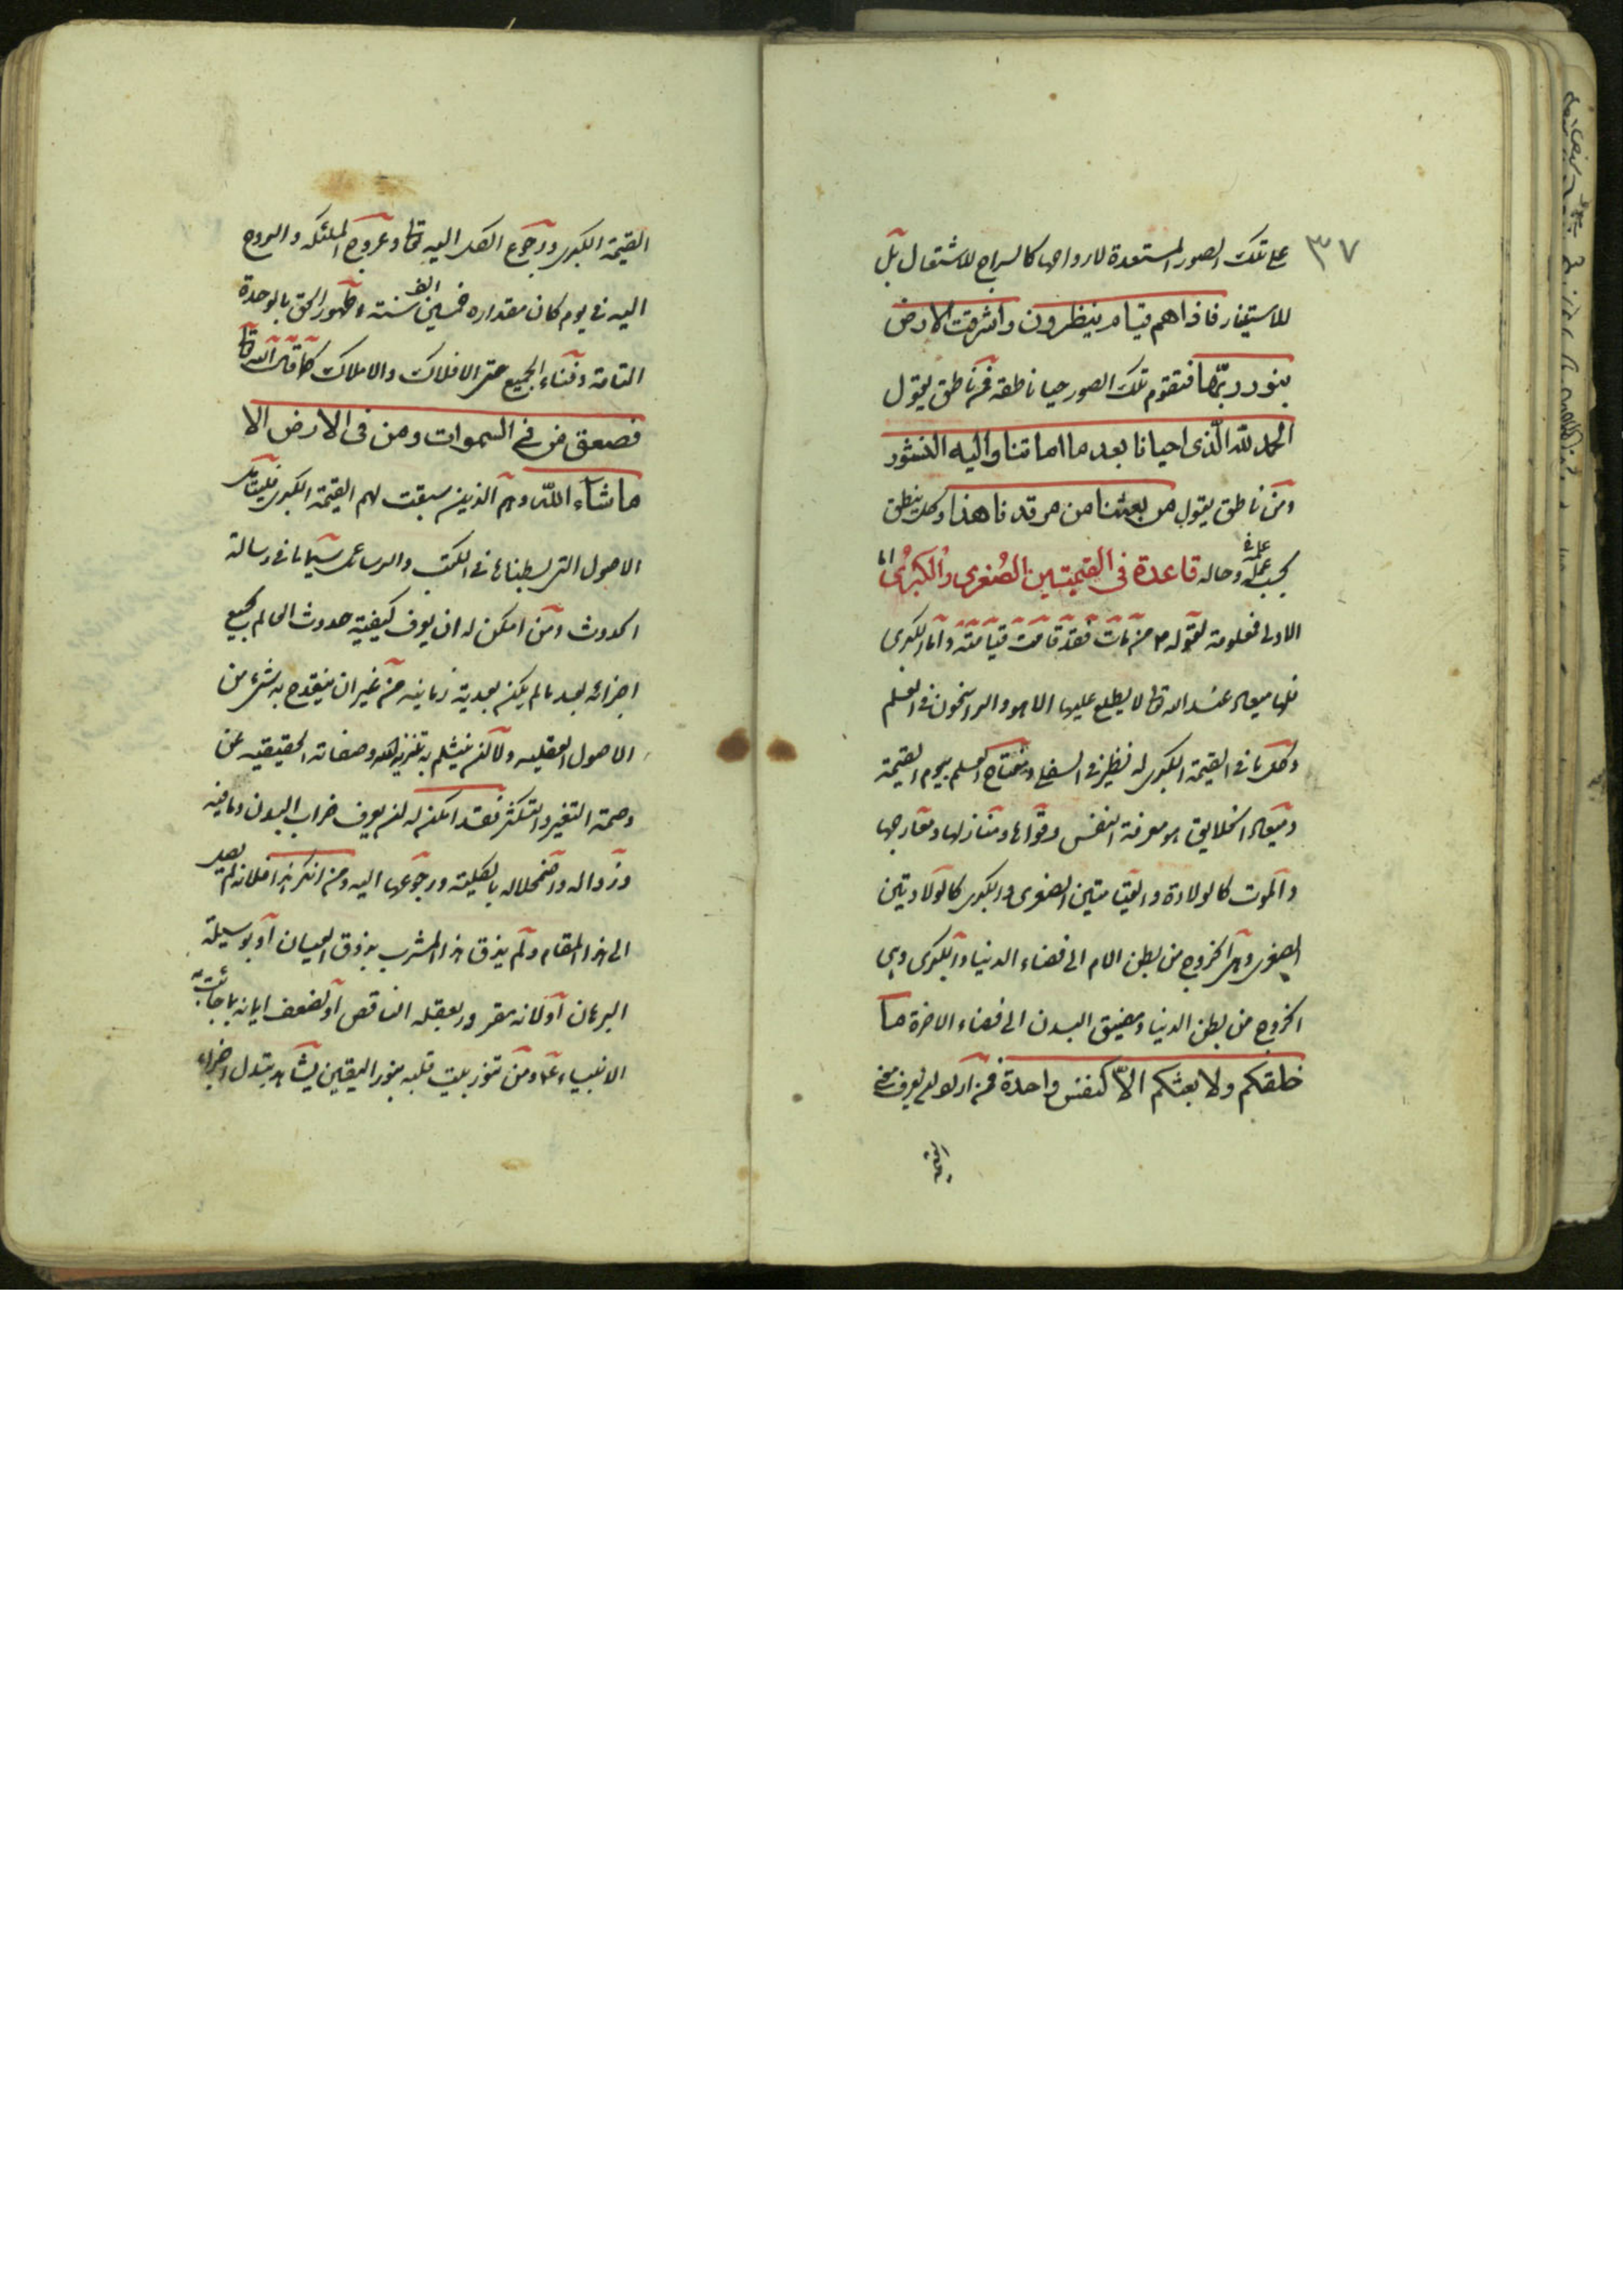 ٣٧
على تلك الصور المستعدة لارواحها كالسراج للاشتعال بل
للاستنار فاذا هم قيام ينظرون واشرقت الارض
بنور ربها فتقوم تلك الصور حيا ناطقة فمن ناطق يقول
الحمد لله الذى احيانا بعد ما اماتنا واليه النشور
ومن ناطق يقول من بعثنا من مرقدنا هذا وكل ينطق
بحسب علمه وحاله قاعدة فى القيمتين الصغرى والكبرى اما
الاولى فمعلومة لقوله من مات فقد قامت قيامته واما الكبرى
فلها ميعاد عند الله تعا لا يطلع عليها الا هو والراسخون فى العلم
وكل ما فى القيمة الكبرى له نظير فى الصغرى ومفتاح العلم بيوم القيمة
ومعاد الخلايق هو معرفة النفس وقواها ومنازلها ومعارجها
والموت كالولادة والقيامتين الصغرى والكبرى كالولادتين
الصغرى وهى الخروج من بطن الام الى فضاء الدنيا والكبرى وهى
الخروج من بطن الدنيا ومضيق البدن الى فضاء الاخرة ما
خلقكم ولا بعثكم الا كنفس واحدة فمن اراد ان يعرف معنى
القيمة
القيمة الكبرى ورجوع الكل اليه تعا وعروج الملئكة والروح
اليه فى يوم كان مقداره خمسين الف سنة وظهور الحق بالوحدة
التامة وفناء الجميع حتى الافلاك والاملاك كما قال الله تعا
فصعق من فى السموات ومن فى الارض الا
ما شاء الله وهم الذين سبقت لهم القيمة الكبرى فليتأمل
الاصول التى بسطناها فى الكتب والرسائل سيما ما فى رسالة
الحدوث ومن امكن له ان يعرف كيفية حدوث العالم بجميع
اجزائه بعد ما لم يكن بعدية زمانية من غير ان ينقدح به شىء من
الاصول العقلية ولا ان ينثلم به تنزيه الله وصفاته الحقيقية عن
وصمة التغير والتكثر فقد امكن له ان يعرف خراب البدن وما فيه
وزواله واضمحلاله بالكلية ورجوعها اليه ومن انكر هذا فلانه لم يصل
الى هذا المقام ولم يذق هذا المشرب بذوق العيان او بوسيلة
البرهان او لانه مغرور بعقله الناقص او لضعف ايمانه بما جائت به
الانبياء ع ومن تنور بيت قلبه بنور اليقين يشاهد تبدل اجزاء